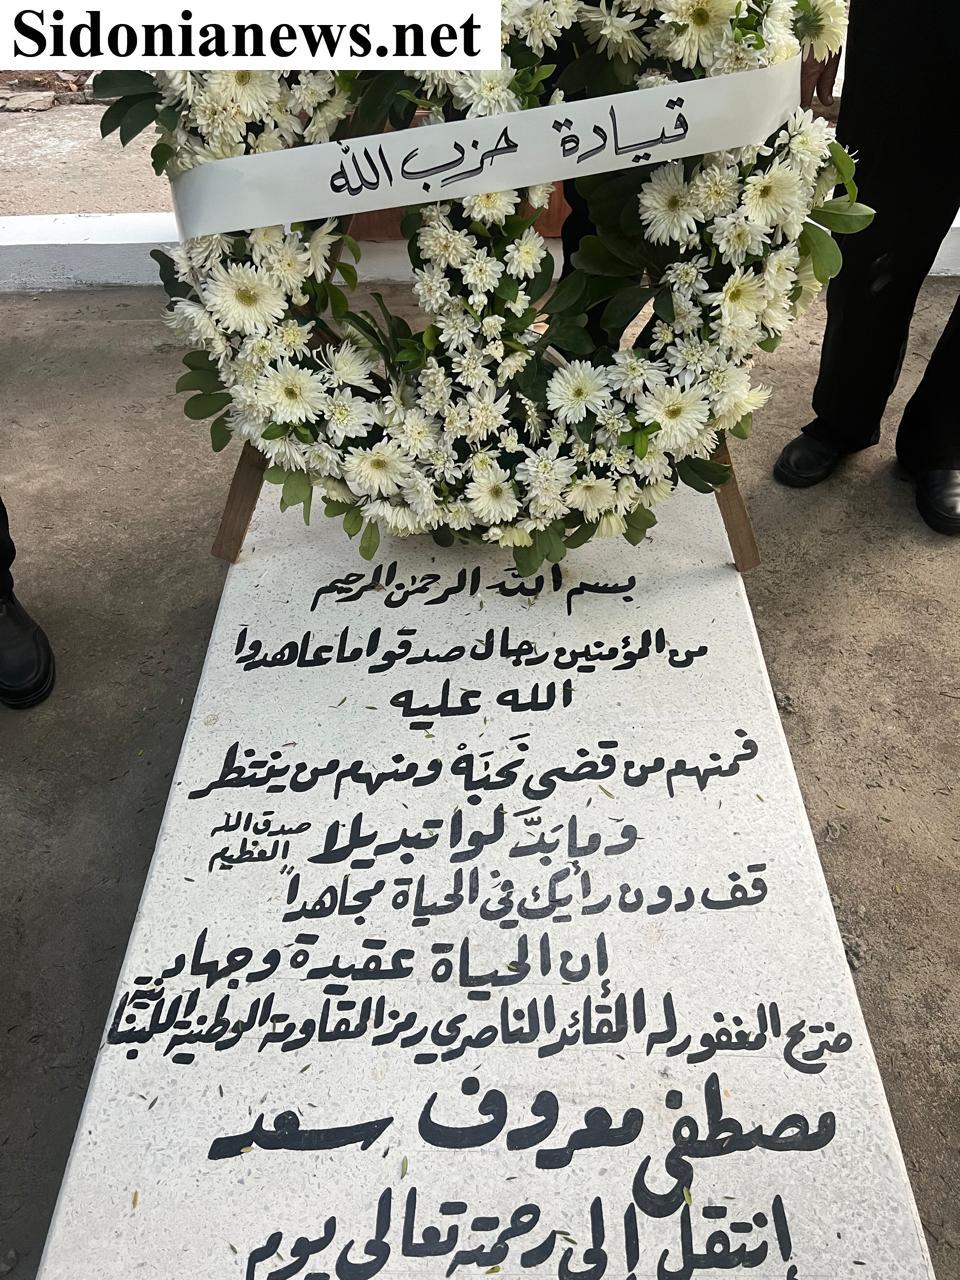 Sidonianews.net
قيادة حزب الله
بسم الله الرحمن الرحيم
من المؤمنين رجال صدقوا ما عاهدوا
الله عليه
فمنهم من قضى نَحبَهْ ومنهم من ينتظر
وما بَدَّلوا تبديلا صدق الله العظيم
قف دون رأيك في الحياة مجاهداً
إن الحياة عقيدة وجهاد
ضريح المغفور له القائد الناصري رمز المقاومة الوطنية اللبنانية
مصطفى معروف سعد
إنتقل إلى رحمته تعالى يوم